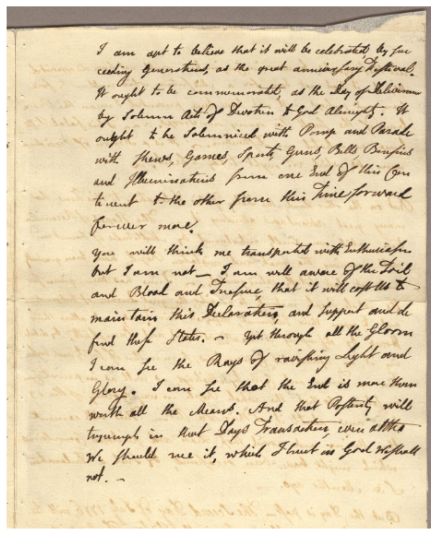 I am apt to believe that it will be celebrated, by suc
ceeding Generations, as the great anniversary Festival.
It ought to be commemorated, as the Day of Deliverance
by Solemn Acts of Devotion to God Almighty. It
ought to be solemnized with Pomp and Parade
with Shews, Games, Sports, Guns, Bells, Bonfires
and Illuminations from one End of this Con
tinent to the other from this Time forward
forever more.
You will think me transported with Enthusiasm
but I am not — I am well aware of the Toil
and Blood and Treasure, that it will cost Us to
maintain this Declaration, and support and de
fend these States. — Yet through all the Gloom
I can see the Rays of ravishing Light and
Glory. I can see that the End is more than
worth all the Means. And that Posterity will
tryumph in that Days Transaction, even altho
We should rue it, which I trust in God We shall
not. —